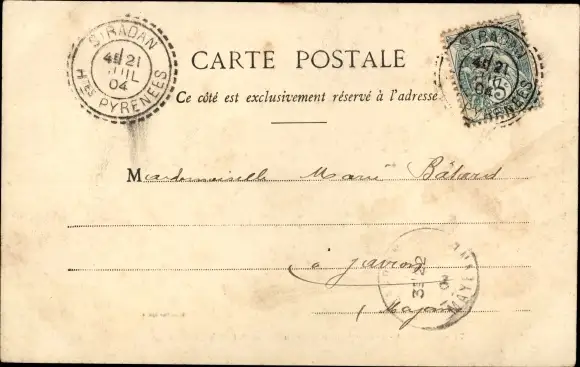 SIRADAN
4E 21
JUIL
04
Htes PYRENEES
CARTE POSTALE
Ce côté est exclusivement réservé à l'adresse
SIRADAN
4E 21
JUIL
04
PYRENEES
5
Mademoiselle Marie Bâtard
à Javron
Mayenne
3E 22
MAYENNE